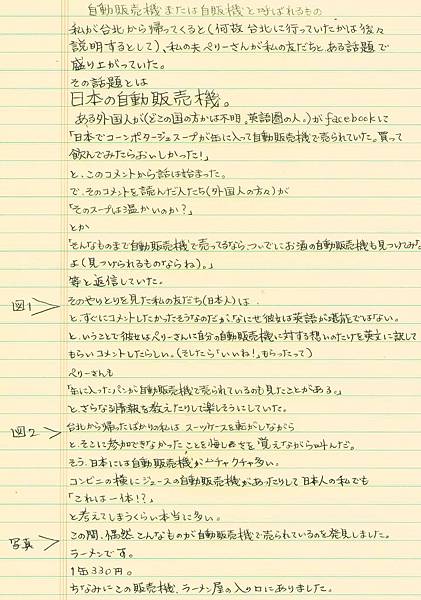 自動販売機または自販機と呼ばれるもの
私が台北から帰ってくると(何故台北に行っていたかは後々
説明するとして)、私の夫ペリーさんが私の友だちと、ある話題で
盛り上がっていた。
その話題とは
日本の自動販売機。
ある外国人が(どこの国の方かは不明。英語圏の人。)がfacebookにて
「日本でコーンポタージュスープが缶に入って自動販売機で売られていた。買って
飲んでみたらおいしかった!」
と、このコメントから話は始まった。
で、そのコメントを読んだ人たち(外国人の方々)が
「そのスープは温かいのか?」
とか
「そんなものまで自動販売機で売ってるなら、ついでにお酒の自動販売機も見つけてみな
よ(見つけられるものならね)。」
等と返信していた。
図1> そのやりとりを見た私の友だち(日本人)は、
と、すぐにコメントしたかったそうなのだが、なにせ彼女は英語が堪能ではない。
と、いうことで彼女はペリーさんに自分の自動販売機に対する想いのたけを英文に訳して
もらいコメントしたらしい。(そしたら「いいね!」もらったって)
ペリーさんも
「缶に入ったパンが自動販売機で売られているのも見たことがある。」
と、さらなる情報を教えたりして楽しそうにしていた。
図2> 台北から帰ったばかりの私は スーツケースを転がしながら
と、そこに参加できなかったことを悔しさを覚えながら叫んだ。
そう、日本には自動販売機がムチャクチャ多い。
コンビニの横にジュースの自動販売機があったりして日本人の私でも
「これは一体!?」
と考えてしまうくらい本当に多い。
写真> この間、偶然、こんなものが自動販売機で売られているのを発見しました。
ラーメンです。
1缶330円。
ちなみにこの販売機、ラーメン屋の入り口にありました。